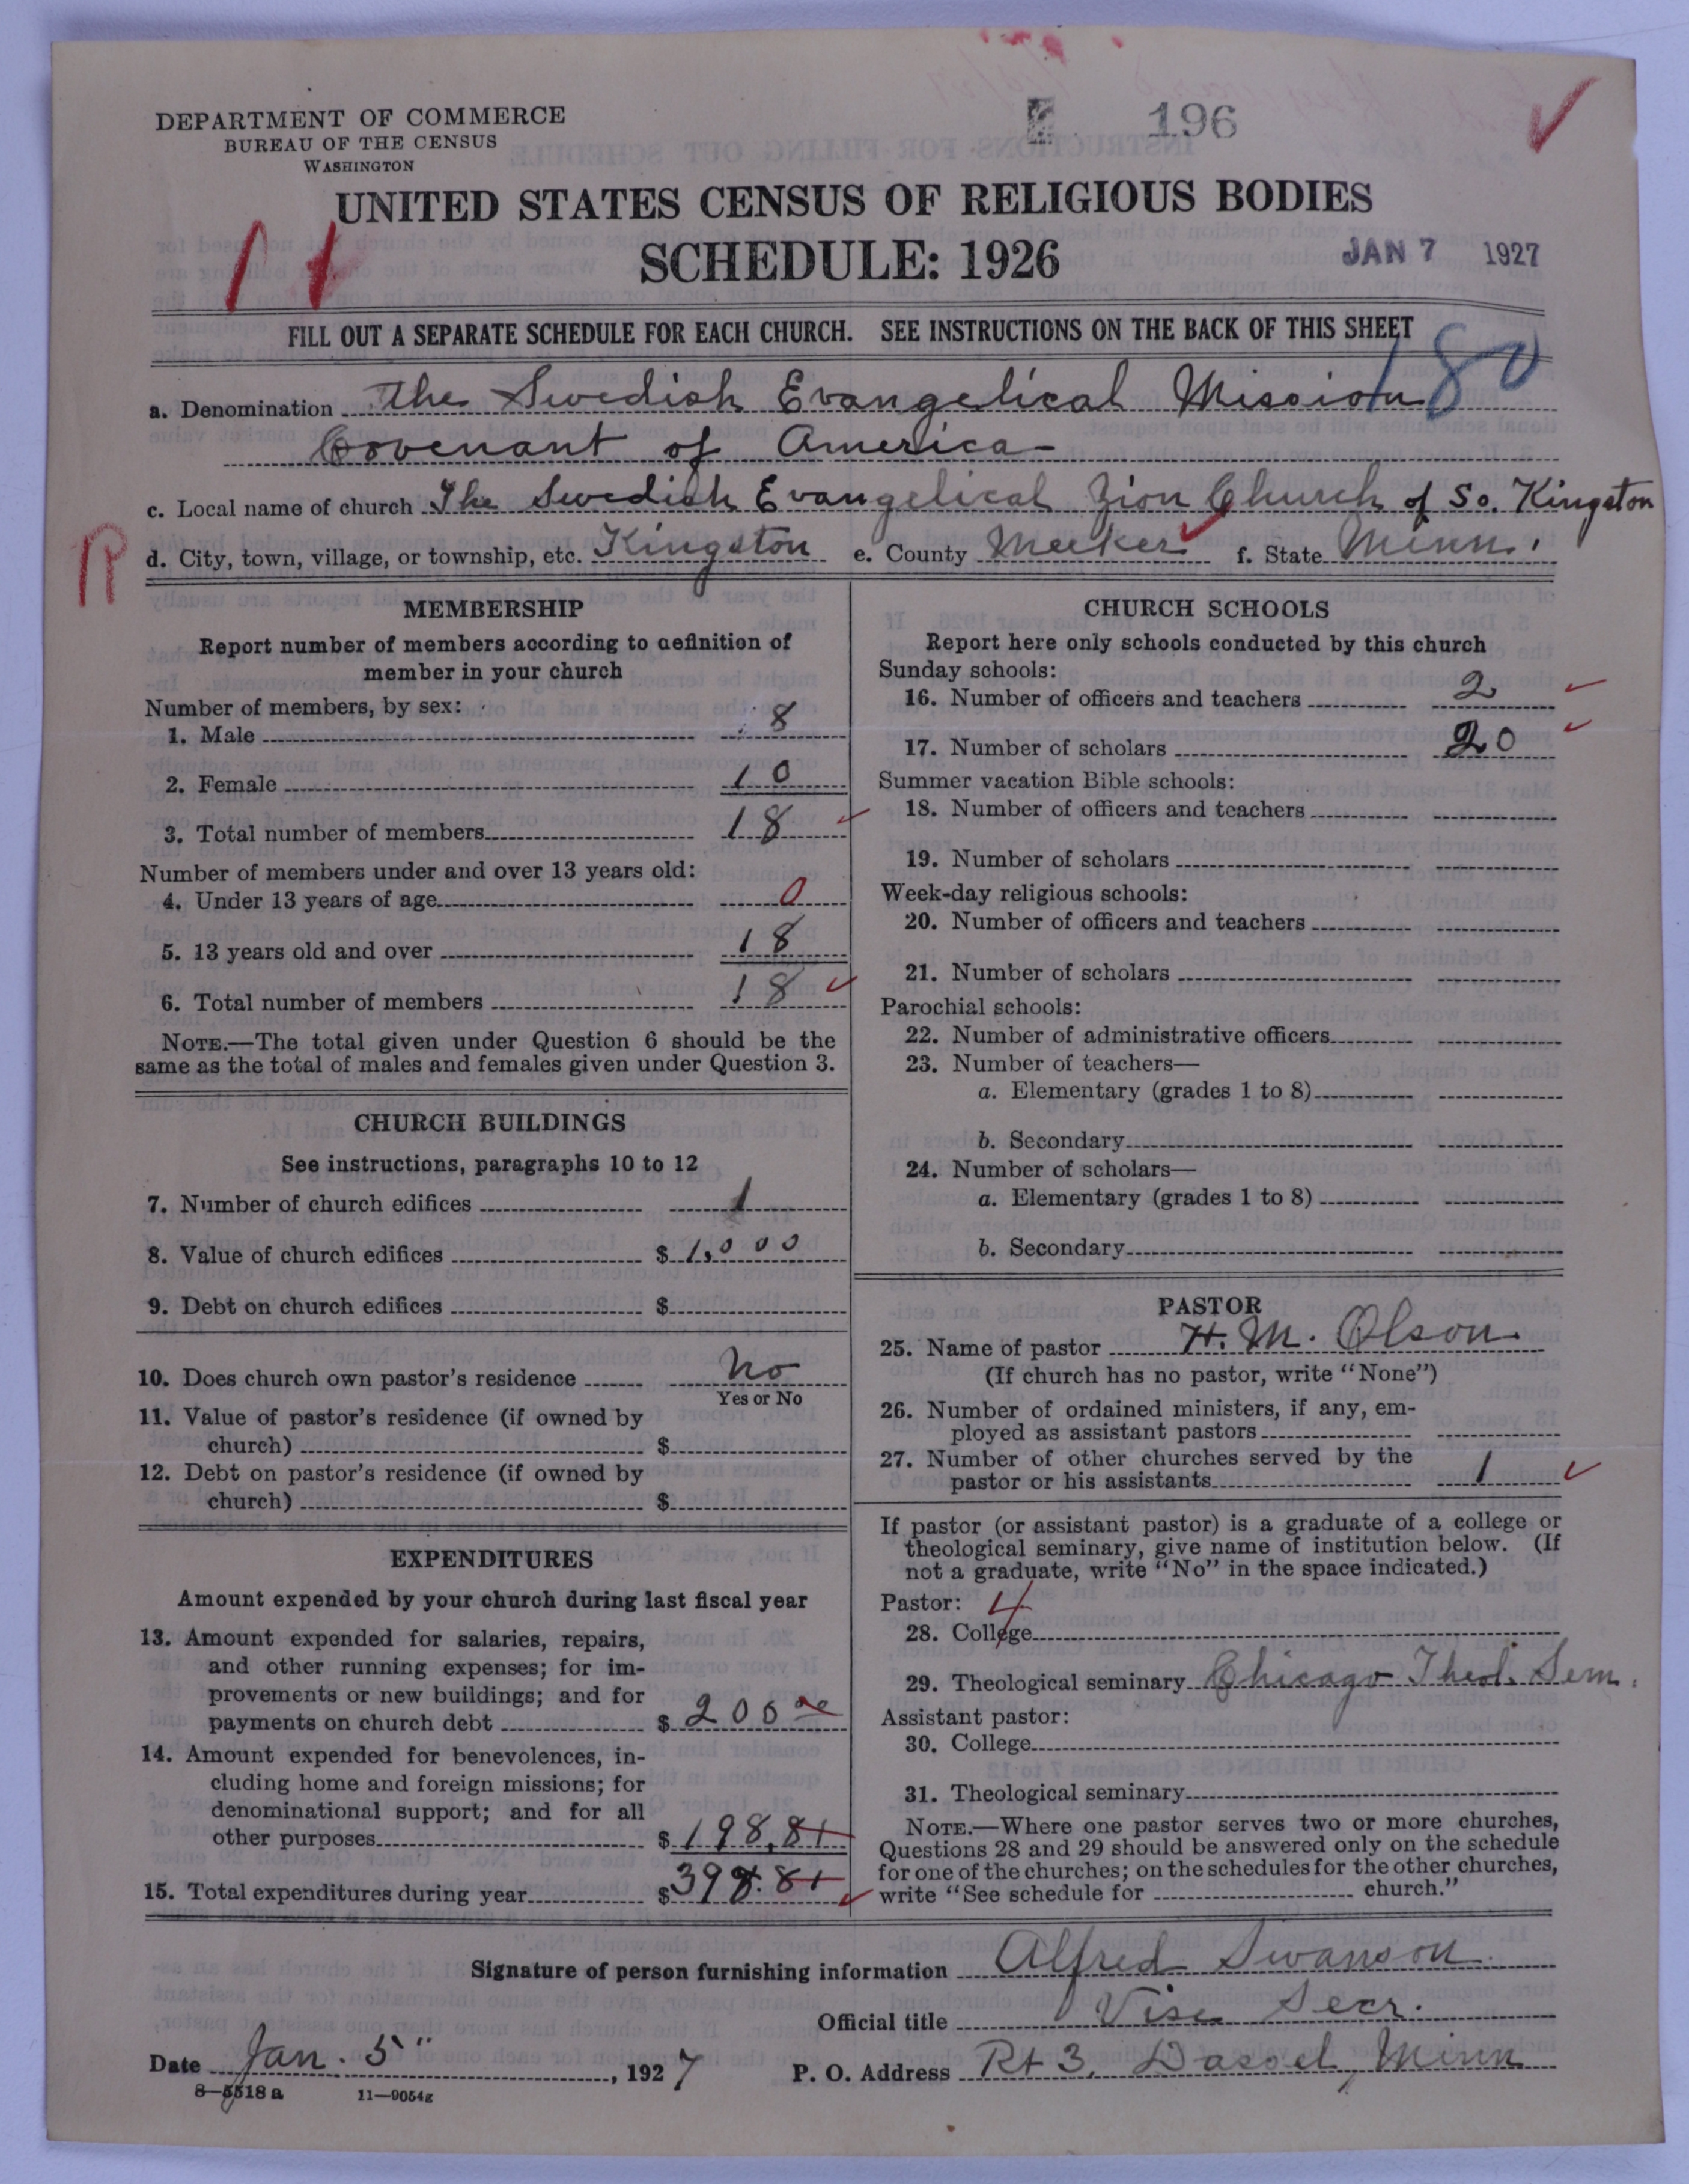 DEPARTMENT OF COMMERCE
BUREAU OF THE CENSUS
WASHINGTON
196
UNITED STATES CENSUS OF RELIGIOUS BODIES
SCHEDULE: 1926
JAN 7 1927
11
FILL OUT A SEPARATE SCHEDULE FOR EACH CHURCH. SEE INSTRUCTIONS ON THE BACK OF THIS SHEET
180
a. Denomination The Swedish Evangelical Mission
Covenant of America
c. Local name of church The Swedish Evangelical Zion Church of So. Kingston
R
d. City, town, village, or township, etc. Kingston e. County Meeker f. State Minn.
MEMBERSHIP
Report number of members according to definition of
member in your church
Number of members, by sex:
1. Male 8
2. Female 10
3. Total number of members 18
Number of members under and over 13 years old:
4. Under 13 years of age 0
5. 13 years old and over 18
6. Total number of members 18
NOTE.—The total given under Question 6 should be the
same as the total of males and females given under Question 3.
CHURCH BUILDINGS
See instructions, paragraphs 10 to 12
7. Number of church edifices 1
8. Value of church edifices $ 1,000
9. Debt on church edifices $
10. Does church own pastor's residence No
Yes or No
11. Value of pastor's residence (if owned by
church) $
12. Debt on pastor's residence (if owned by
church) $
EXPENDITURES
Amount expended by your church during last fiscal year
13. Amount expended for salaries, repairs,
and other running expenses; for im-
provements or new buildings; and for
payments on church debt $ 200 00
14. Amount expended for benevolences, in-
cluding home and foreign missions; for
denominational support; and for all
other purposes $ 198.81
15. Total expenditures during year $ 398.81
CHURCH SCHOOLS
Report here only schools conducted by this church
Sunday schools:
16. Number of officers and teachers 2
17. Number of scholars 20
Summer vacation Bible schools:
18. Number of officers and teachers
19. Number of scholars
Week-day religious schools:
20. Number of officers and teachers
21. Number of scholars
Parochial schools:
22. Number of administrative officers
23. Number of teachers—
a. Elementary (grades 1 to 8)
b. Secondary
24. Number of scholars—
a. Elementary (grades 1 to 8)
b. Secondary
PASTOR
25. Name of pastor H. M. Olson
(If church has no pastor, write "None")
26. Number of ordained ministers, if any, em-
ployed as assistant pastors
27. Number of other churches served by the
pastor or his assistants 1
If pastor (or assistant pastor) is a graduate of a college or
theological seminary, give name of institution below. (If
not a graduate, write "No" in the space indicated.)
Pastor: 4
28. College
29. Theological seminary Chicago Theol. Sem.
Assistant pastor:
30. College
31. Theological seminary
NOTE.—Where one pastor serves two or more churches,
Questions 28 and 29 should be answered only on the schedule
for one of the churches; on the schedules for the other churches,
write "See schedule for church."
Signature of person furnishing information Alfred Swanson
Official title Vise Secr.
Date Jan. 5", 1927 P. O. Address Rt 3, Dassel, Minn
8—5518 a 11—9054g